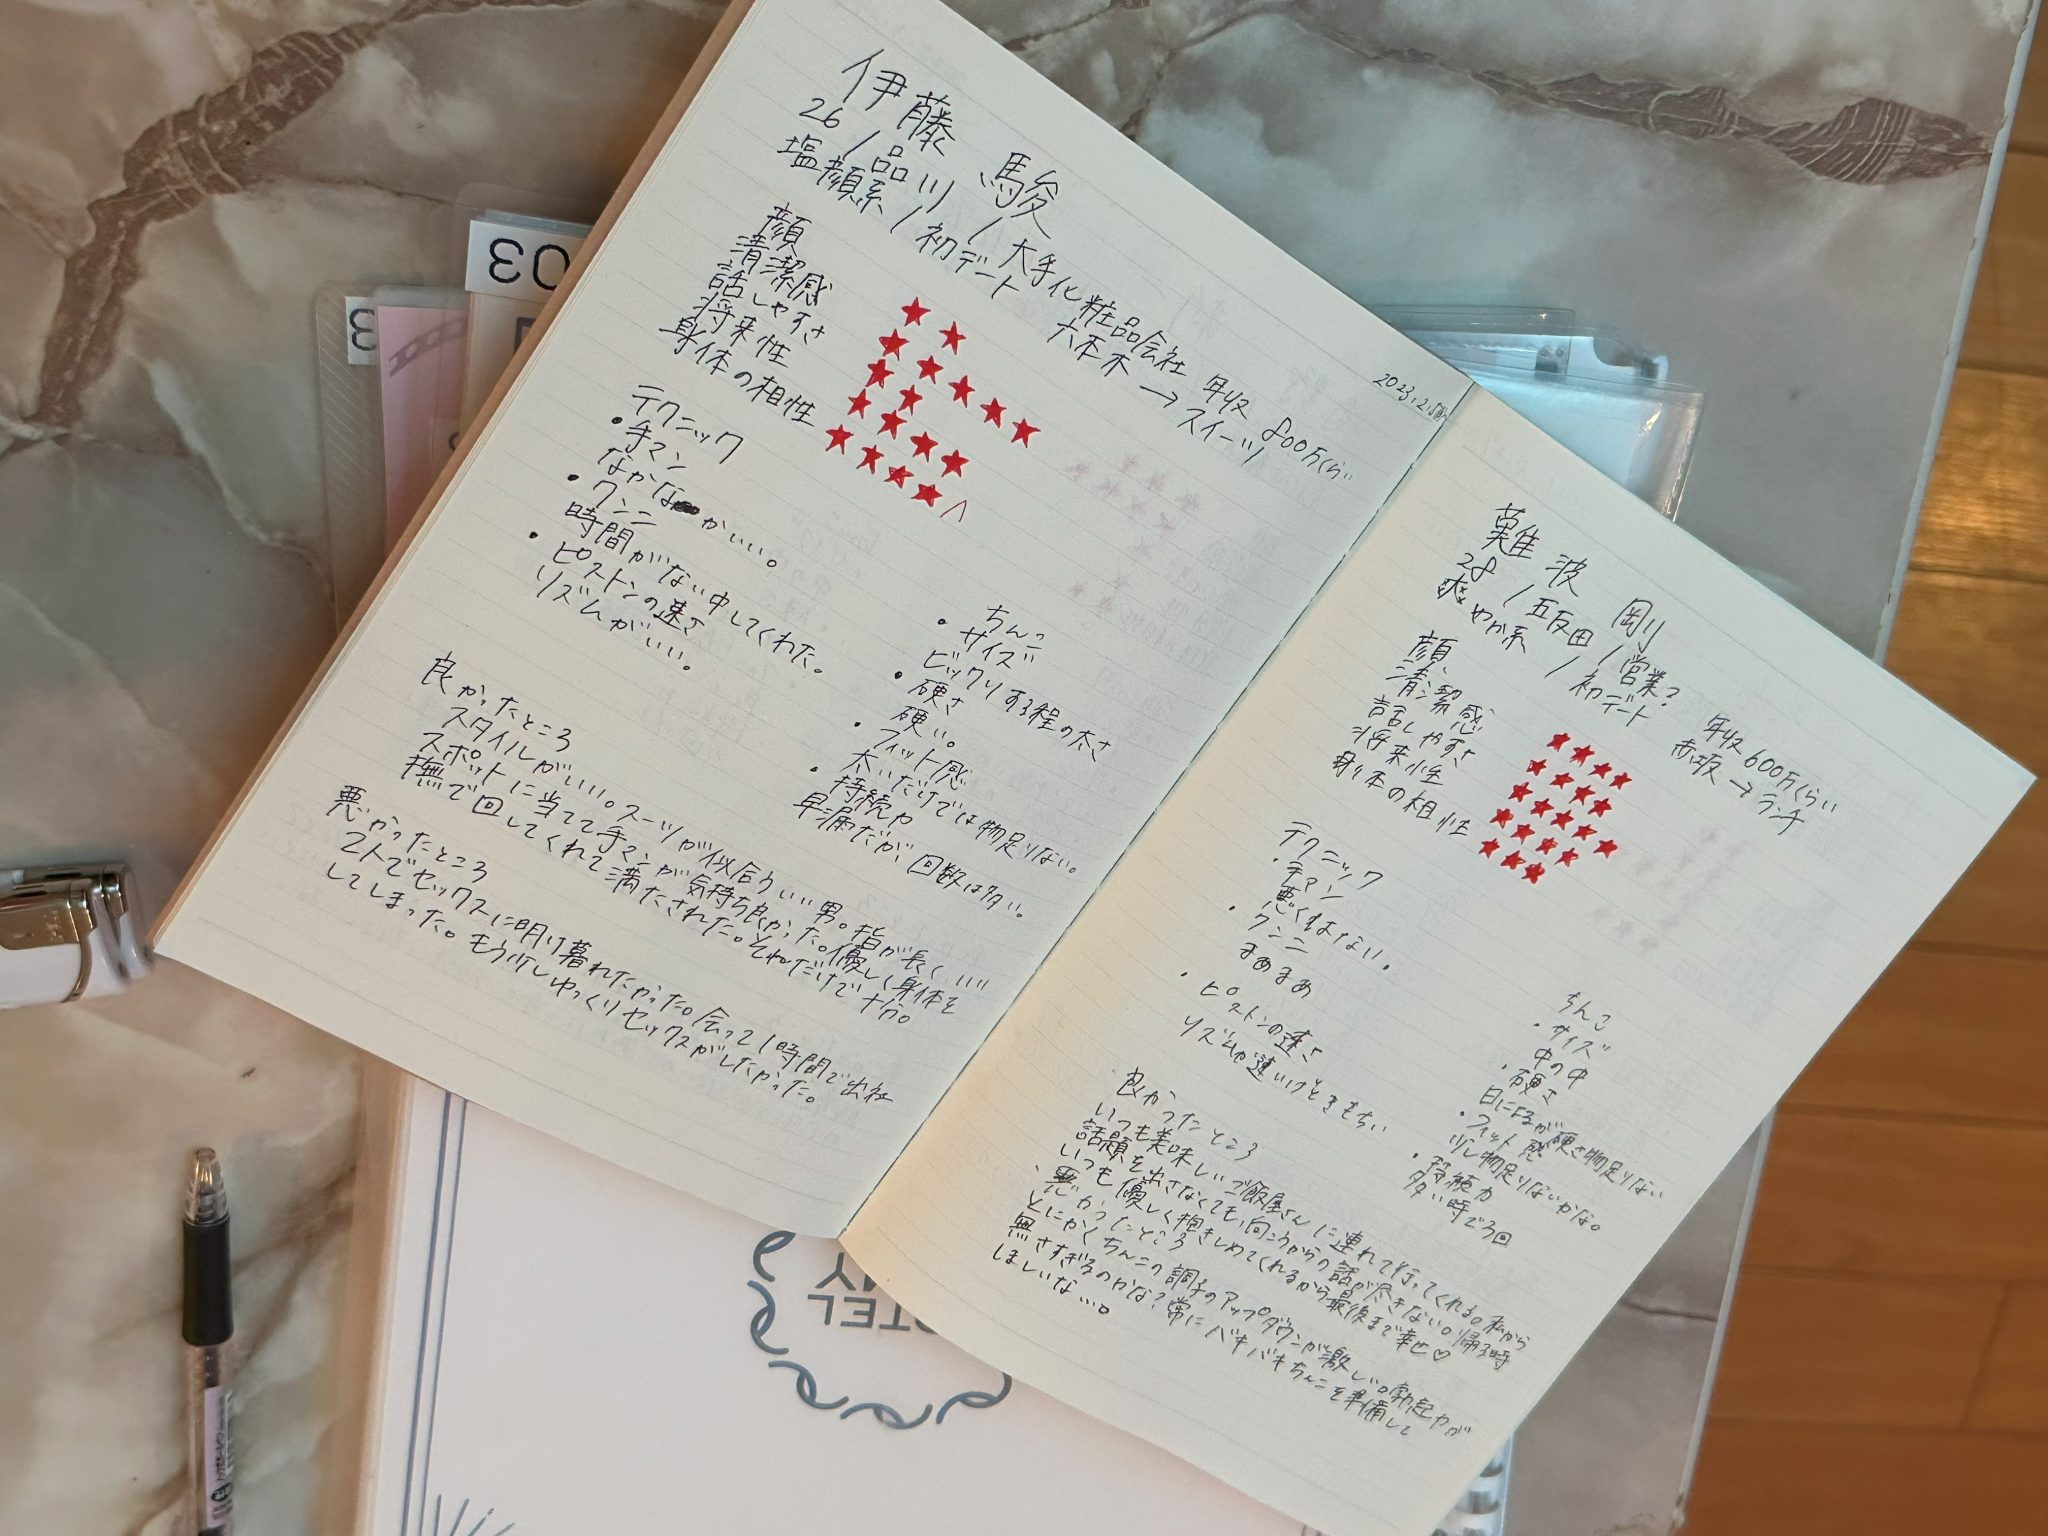 伊藤 駿
26 / 品川 / 大手化粧品会社 年収 800万くらい
塩顔系 / 初デート 六本木 → スイーツ
顔 ★★
清潔感 ★★★★★
話しやすさ ★★
将来性 ★★★★
身体の相性 ★★★★
テクニック
・手マン
なかなかいい。
・クンニ
時間がない中してくれた。
・ピストンの速さ
リズムがいい。
ちんこ
・サイズ
ビックリする程の太さ
・硬さ
硬い。
・フィット感
太いだけでは物足りない。
・持続力
早漏だが、回数は多い。
良かったところ
スタイルがいい。スーツが似合ういい男。指が長くいい
スポットに当てて手マンが気持ち良かった。優しく身体を
撫で回してくれて満たされた。それだけで十分。
悪かったところ
2人でセックスに明け暮れたかった。会って1時間で出社
してしまった。もう少しゆっくりセックスがしたかった。
2023.2.
難波 剛
28 / 五反田 / 営業? 年収600万くらい
爽やか系 / 初デート 赤坂 → ランチ
顔 ★★★★
清潔感 ★★★★
話しやすさ ★★★★
将来性 ★★★★★
身体の相性 ★★★
テクニック
・手マン
悪くはない。
・クンニ
まあまあ
・ピストンの速さ
リズムが速いけどきもちい
ちんこ
・サイズ
中の中
・硬さ
日によるが硬さ物足りない
・フィット感
少し物足りないかな。
・持続力
多い時で3回
良かったところ
いつも美味しいご飯屋さんに連れて行ってくれる。私から
話題を出さなくても、向こうからの話が尽きない。帰る時
いつも優しく抱きしめてくれるから最後まで幸せ♡
悪かったところ
とにかくちんこの調子のアップダウンが激しい。勃起力が
無さすぎるのかな?常にバキバキちんこを準備して
ほしいな…。
03
3